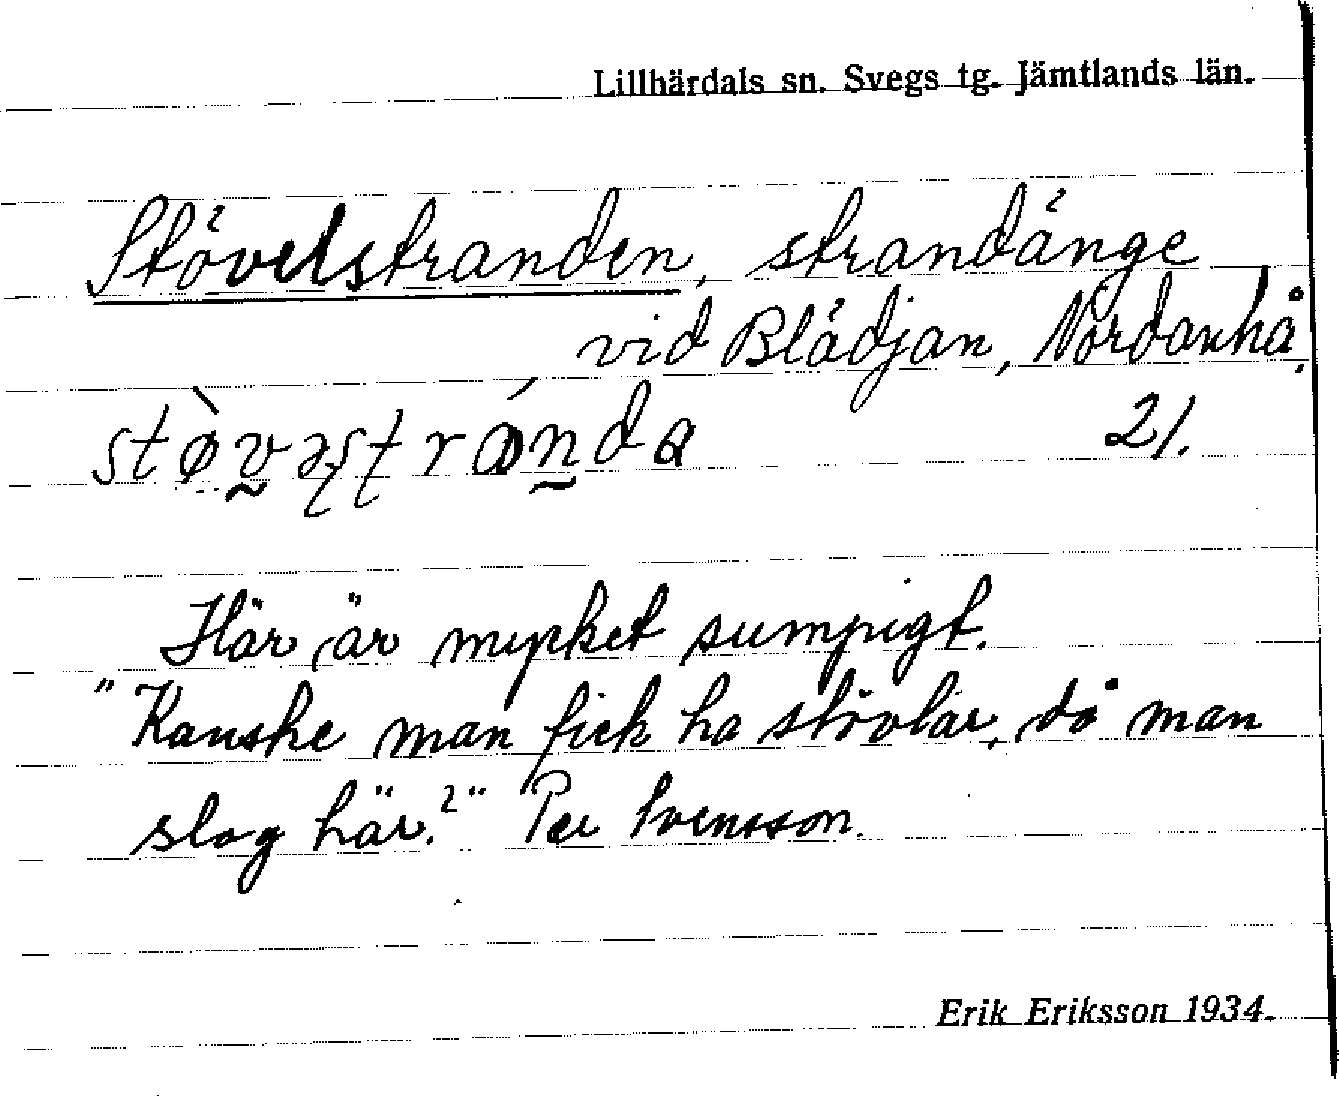 Lillhärdals sn. Svegs tg. Jämtlands län.
Stövelstranden, strandänge
vid Blädjan, Nordanhå.
21.
Här är mycket sumpigt.
"Kanske man fick ha stövlar, då man
slog här?" Per Svensson.
Erik Eriksson 1934.